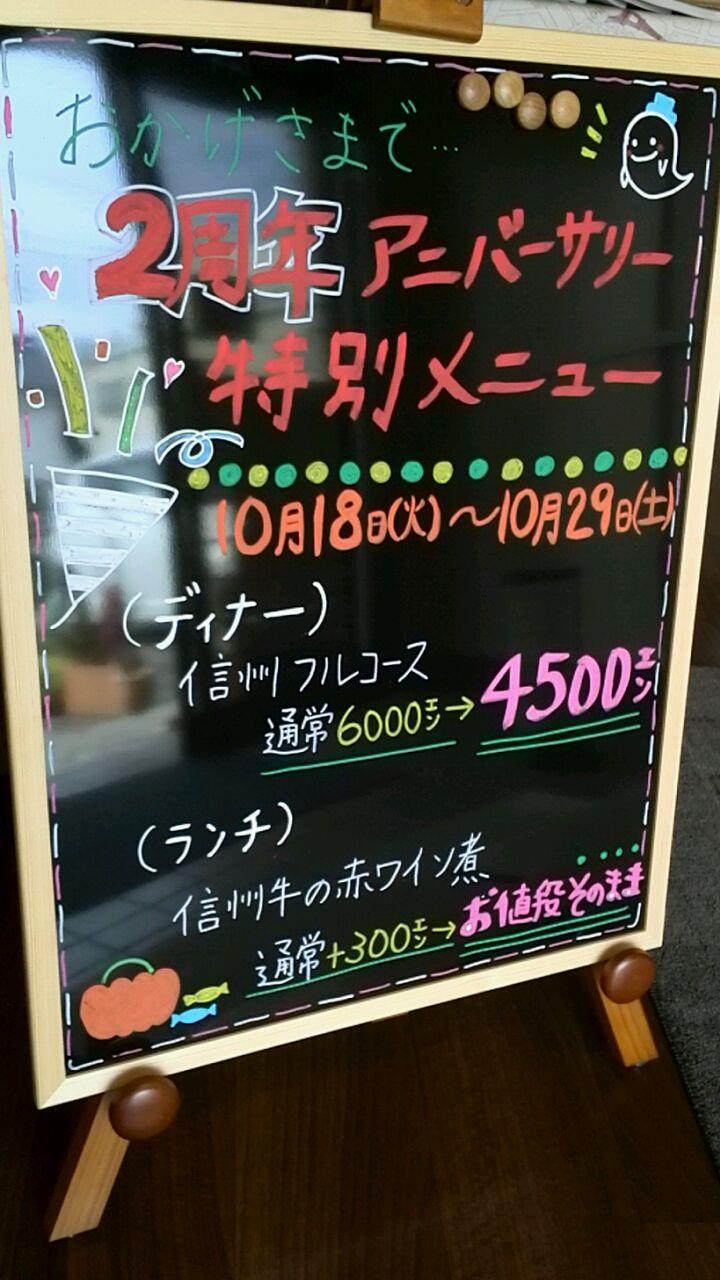 おかげさまで…
2周年 アニバーサリー
特別メニュー
10月18日(火)～10月29日(土)
(ディナー)
信州フルコース
通常6000エン→4500エン
(ランチ)
信州牛の赤ワイン煮
通常+300エン→お値段そのまま